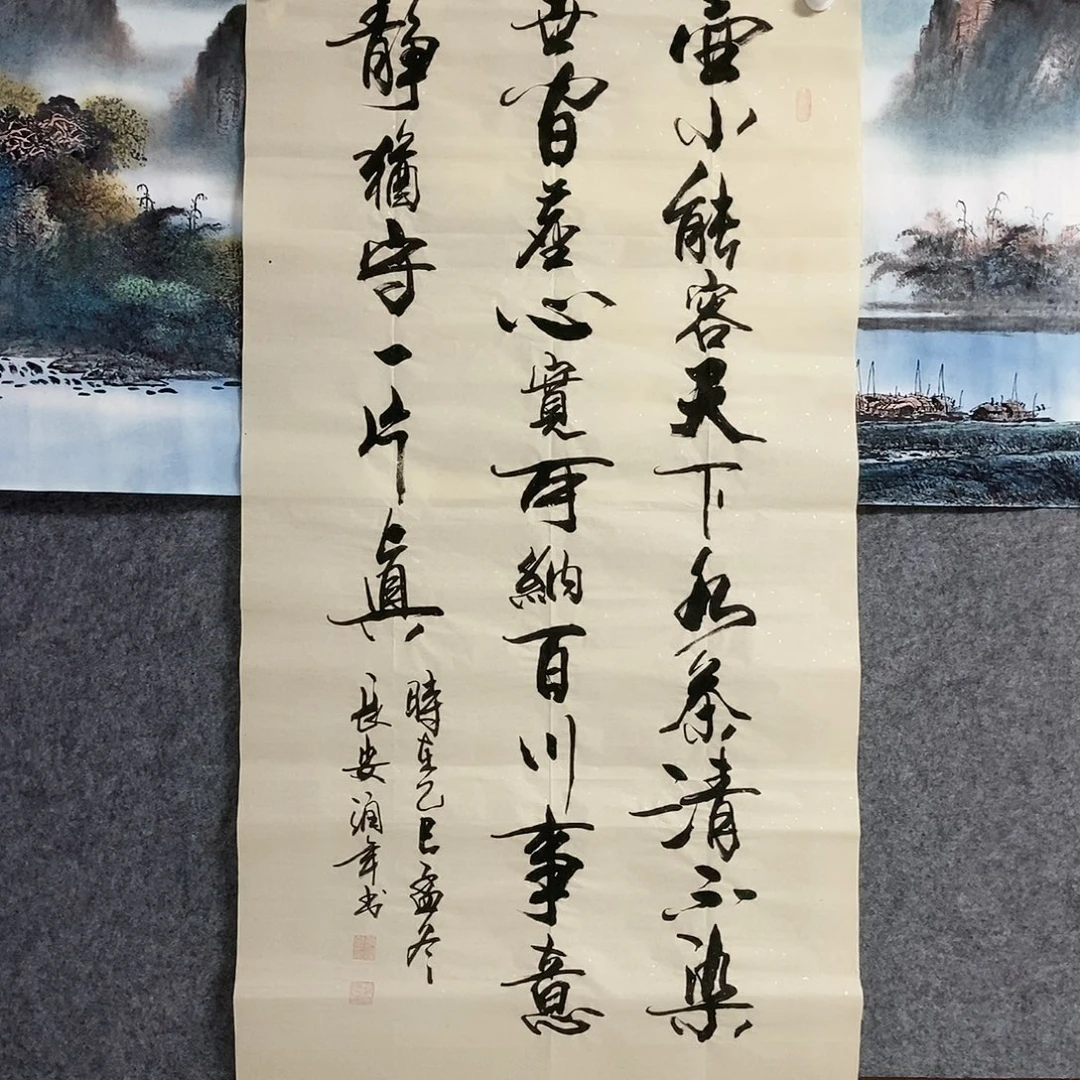 壺小能容天下水茶清不染
世間塵心寬可納百川事意
靜猶守一片眞
時在乙巳孟冬
長安润年书